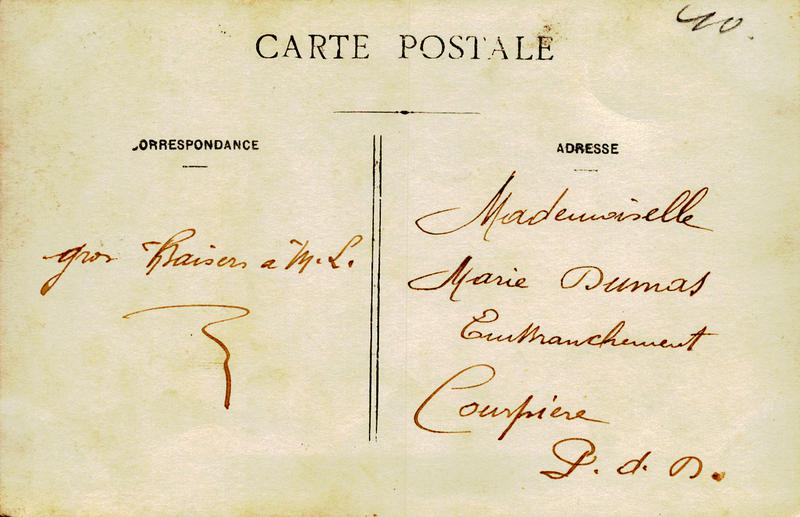 40.
CARTE POSTALE
CORRESPONDANCE
ADRESSE
gros Baisers a M. L.
Mademoiselle
Marie Dumas
Embranchement
Courpière
P. d. D.